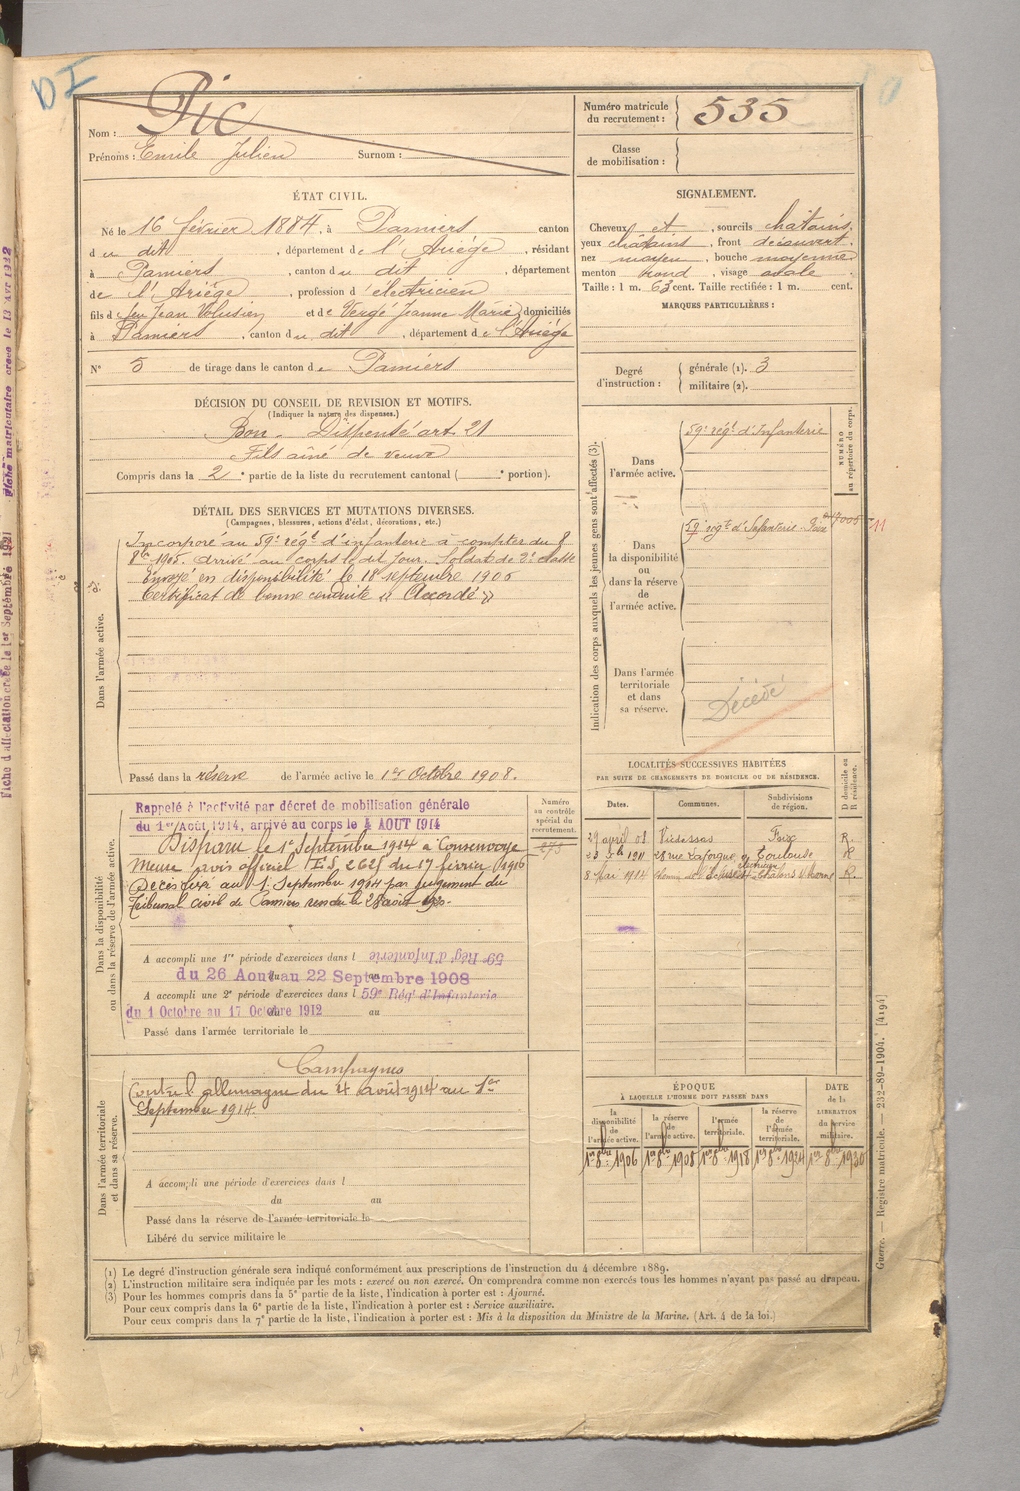 DI
Nom : Pic
Prénoms : Emile Julien Surnom :
Numéro matricule du recrutement : 535
Classe de mobilisation :
ÉTAT CIVIL.
Né le 16 février 1884, à Pamiers canton
du dit, département de l'Ariège, résidant
à Pamiers, canton du dit, département
de l'Ariège, profession d'électricien
fils de feu Jean Volusien et de Vergé Jeanne Marie domiciliés
à Pamiers, canton du dit, département de l'Ariège
N° 5 de tirage dans le canton de Pamiers
SIGNALEMENT.
Cheveux et, sourcils châtains,
yeux châtains, front découvert,
nez moyen, bouche moyenne
menton rond, visage ovale.
Taille : 1 m. 63 cent. Taille rectifiée : 1 m. cent.
MARQUES PARTICULIÈRES :
Degré d'instruction : générale (1). 3
militaire (2).
DÉCISION DU CONSEIL DE REVISION ET MOTIFS.
(Indiquer la nature des dispenses.)
Bon - Dispensé art 21
Fils aîné de veuve
Compris dans la 2e partie de la liste du recrutement cantonal ( e portion).
DÉTAIL DES SERVICES ET MUTATIONS DIVERSES.
(Campagnes, blessures, actions d'éclat, décorations, etc.)
Dans l'armée active.
Incorporé au 59e régt d'infanterie à compter du 8
8bre 1905. Arrivé au corps le dit jour. Soldat de 2e classe
Envoyé en disponibilité le 18 septembre 1906
Certificat de bonne conduite « Accordé »
Passé dans la réserve de l'armée active le 1er Octobre 1908.
Indication des corps auxquels les jeunes gens sont affectés (3).
NUMÉRO au répertoire du corps.
Dans l'armée active.
59e régt d'Infanterie
Dans la disponibilité ou dans la réserve de l'armée active.
59e régt d'Infanterie - Foix
Dans l'armée territoriale et dans sa réserve.
Décédé
LOCALITÉS SUCCESSIVES HABITÉES
PAR SUITE DE CHANGEMENTS DE DOMICILE OU DE RÉSIDENCE.
D domicile ou R résidence.
Dates. Communes. Subdivisions de région.
29 avril 08 Vicdessos Foix R.
28 rue Laforgue Toulouse R
8 Mai 1914 Châlons s/ Marne R.
Dans la disponibilité ou dans la réserve de l'armée active.
Numéro au contrôle spécial du recrutement.
273
Rappelé à l'activité par décret de mobilisation générale
du 1er Août 1914, arrivé au corps le 4 AOUT 1914
Disparu le 1er Septembre 1914 à Consenvoye
Meuse avis officiel E.S 2625 du 17 février 1916
Décès fixé au 1 Septembre 1914 par jugement du
Tribunal civil de Pamiers rendu le 28 août 1920.
A accompli une 1re période d'exercices dans l 59e Rég' d'Infanterie
du 26 Aout au 22 Septembre 1908
A accompli une 2e période d'exercices dans l 59e Rég' d'Infanterie
du 1 Octobre au 17 Octobre 1912 au
Passé dans l'armée territoriale le
Dans l'armée territoriale et dans sa réserve.
Campagnes
Contre l'allemagne du 4 août 1914 au 1er
Septembre 1914.
A accompli une période d'exercices dans l
du au
Passé dans la réserve de l'armée territoriale le
Libéré du service militaire le
ÉPOQUE
À LAQUELLE L'HOMME DOIT PASSER DANS
la disponibilité de l'armée active.
la réserve de l'armée active.
l'armée territoriale.
la réserve de l'armée territoriale.
DATE de la LIBÉRATION du service militaire.
1er 8bre 1906 1er 8bre 1908 1er 8bre 1918 1er 8bre 1924 1er 8bre 1930
(1) Le degré d'instruction générale sera indiqué conformément aux prescriptions de l'instruction du 4 décembre 1889.
(2) L'instruction militaire sera indiquée par les mots : exercé ou non exercé. On comprendra comme non exercés tous les hommes n'ayant pas passé au drapeau.
(3) Pour les hommes compris dans la 5e partie de la liste, l'indication à porter est : Ajourné.
Pour ceux compris dans la 6e partie de la liste, l'indication à porter est : Service auxiliaire.
Pour ceux compris dans la 7e partie de la liste, l'indication à porter est : Mis à la disposition du Ministre de la Marine. (Art. 4 de la loi.)
Guerre. — Registre matricule. — 232-89-1904. [4194]
Fiche d'affectation créée le 1er Septembre 1921
Fiche matriculaire créée le 13 Avr 1922